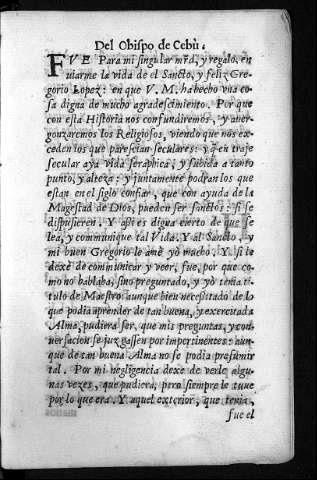 Del Obispo de Cebù.
FVE Para mi singular mrd, y regalo, en
uiarme la vida de el Sancto, y feliz Gre
gorio Lopez: en que V. M. ha hecho vna co
sa digna de mucho agradescimiento. Por que
con esta Historia nos confundiremos, y aver-
gonzaremos los Religiosos, viendo que nos ex-
ceden los que parescian seculares: y q̃ en traje
secular aya vida seraphica, y subida a tanto
punto, y alteza: y juntamente podran los que
estan en el siglo confiar, que con ayuda de la
Magestad de Dios, pueden ser sanctos: si se
dispusieren. Y assi es digna cierto de que se
lea, y communique tal Vida. Y al Sancto, y
mi buen Gregorio le amè yò mucho. Y si le
dexè de communicar y veer, fue, por que co-
mo no hablaba, sino preguntado, y yò tenia ti-
tulo de Maestro: aunque bien necessitado de lo
que podia aprender de tan buena, y exercitada
Alma, pudiera ser, que mis preguntas, y con-
uersacion se juzgassen por impertinentes: aun-
que de tan buena Alma no se podia presumir
tal. Por mi negligencia dexè de verle algu-
nas vezes, que pudiera, pero siempre le tuue
por lo que era. Y aquel exterior, que tenia,
fue el